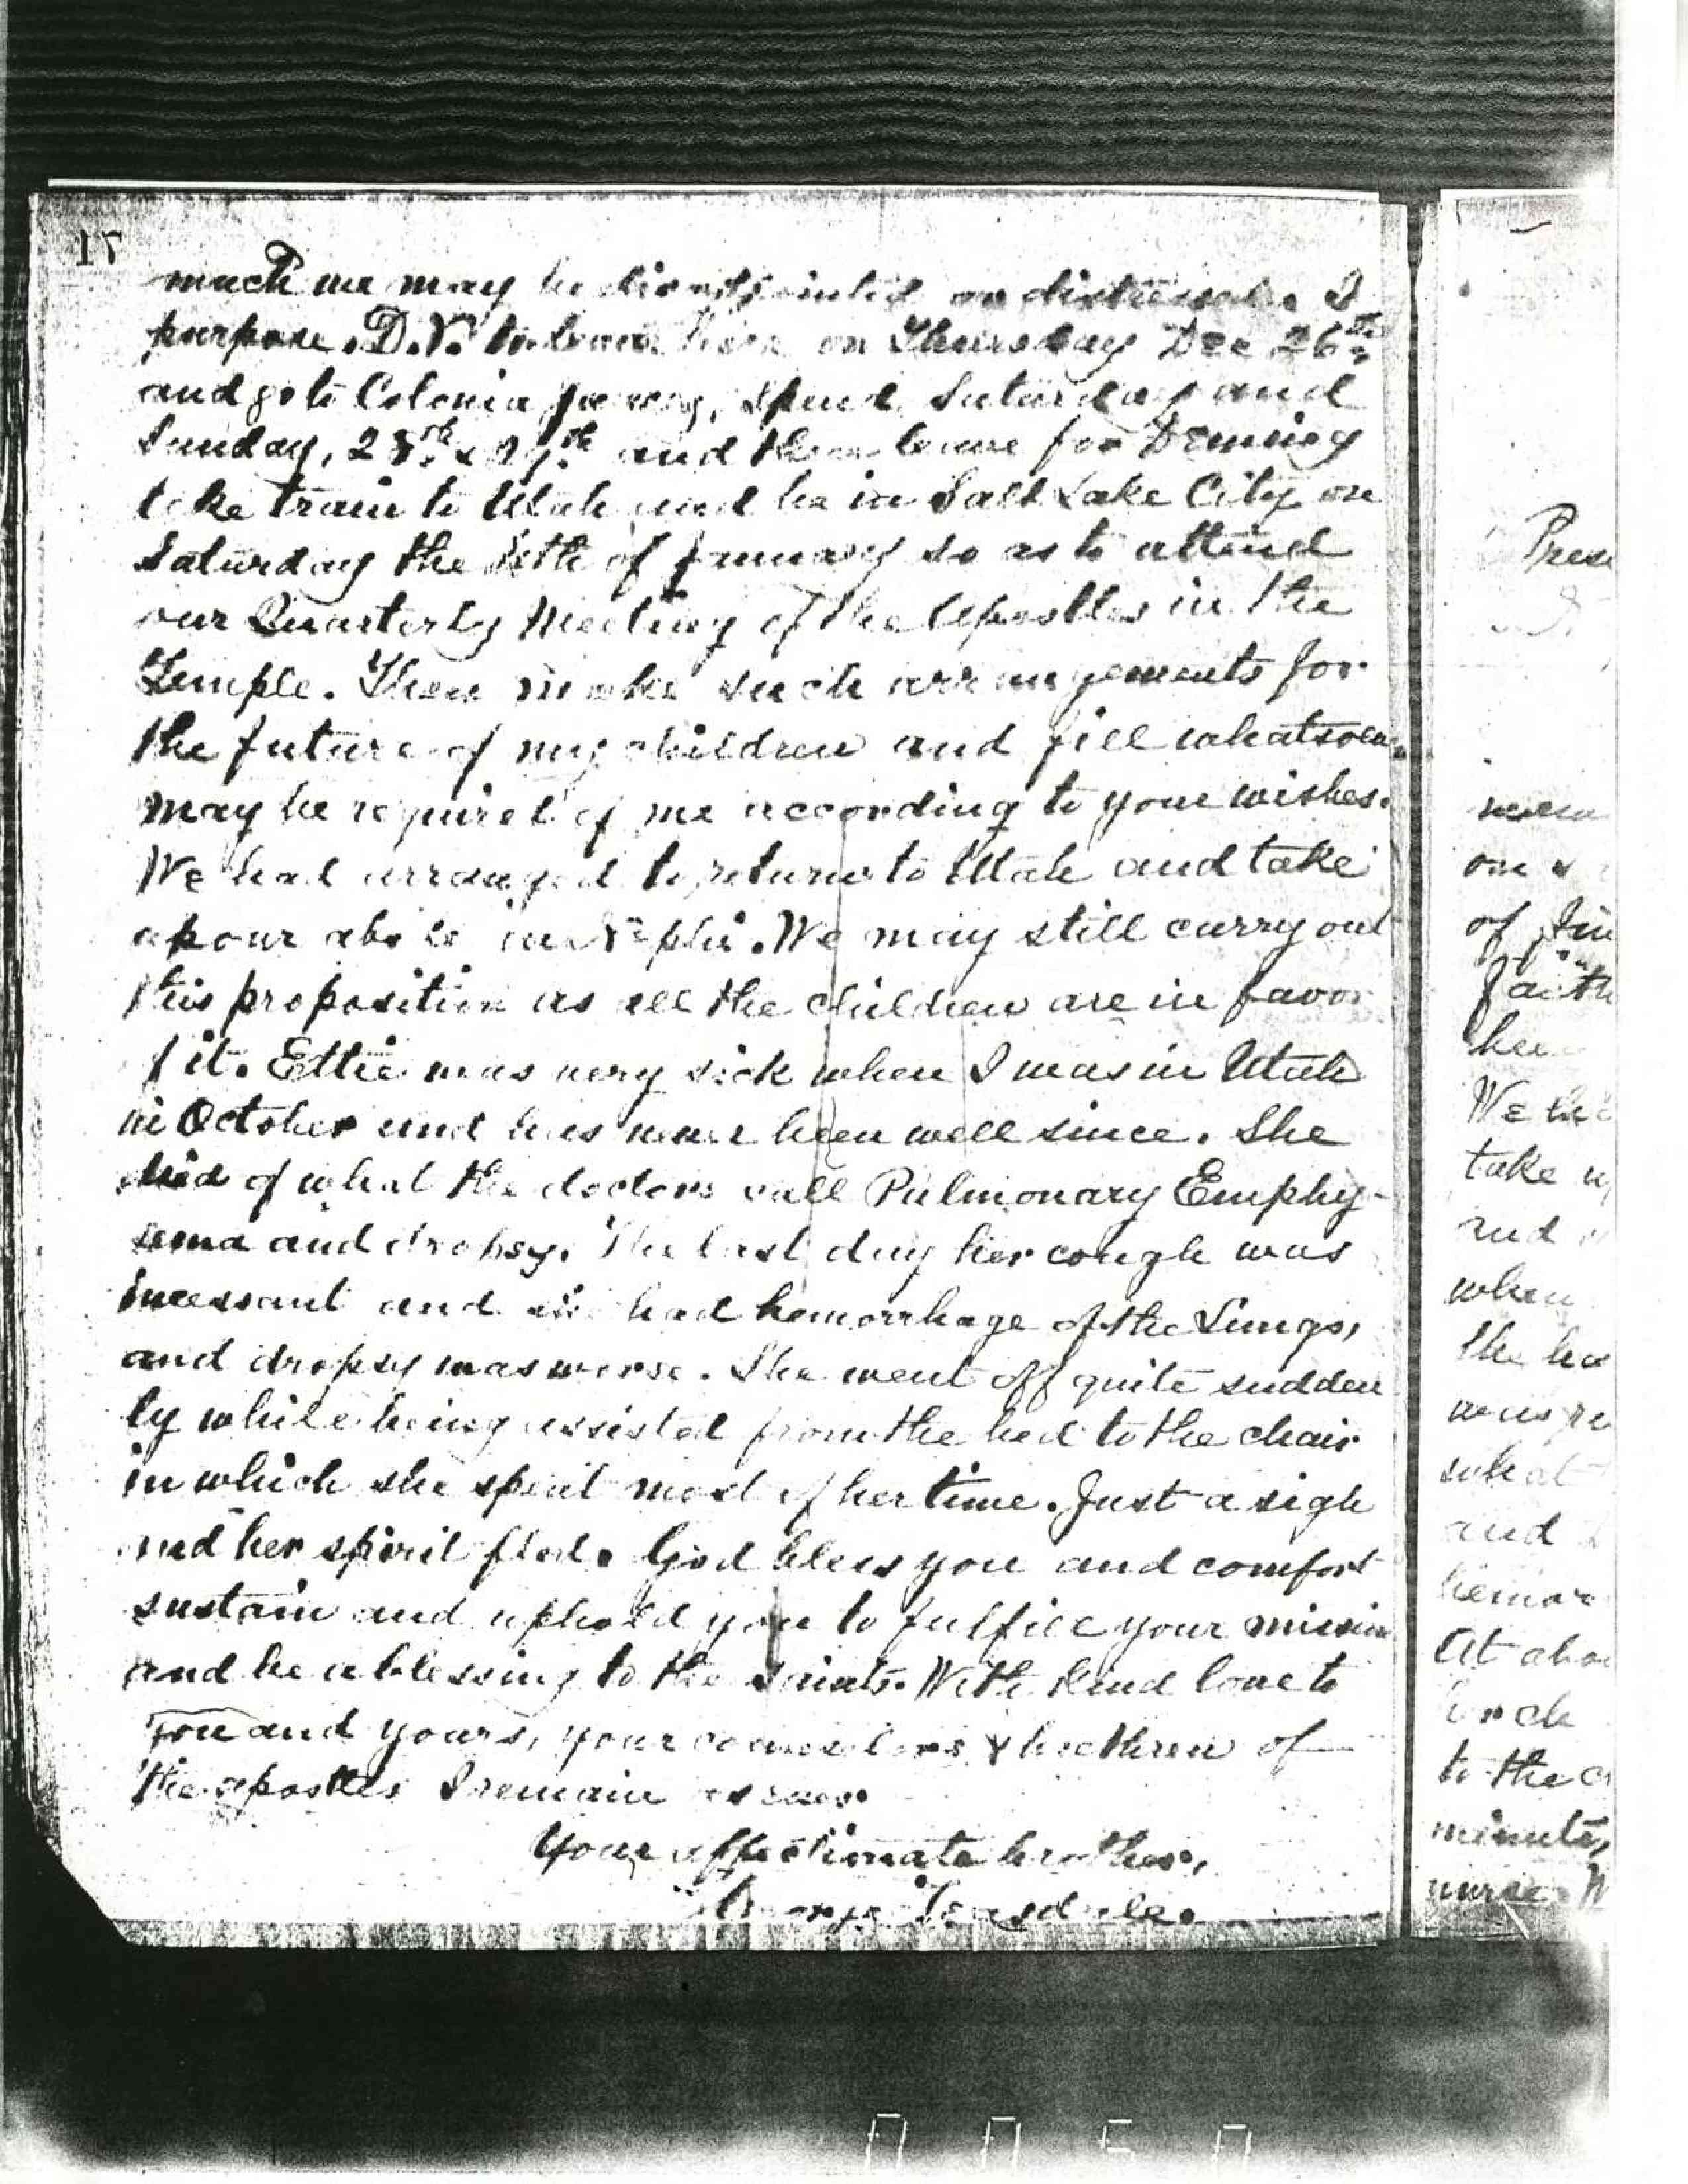 17
much we may be disappointed or distressed. I
purpose. D.V. to leave here on Thursday Dec 26th
and go to Colonia Juarez, spend Saturday and
Sunday, 28th & 29th and then leave for Deming
take train to Utah and be in Salt Lake City on
Saturday the of January so as to attend
our Quarterly Meeting of the Apostles in the
Temple. Then make such arrangements for
the future of my children and fill whatsoev
may be required of me according to your wishes.
We had arranged to return to Utah and take
up our abode in Nephi. We may still carry out
this proposition as all the children are in favor
f it. Ettie was very sick when I was in Utah
in October and has never been well since. She
died of what the doctors call Pulmonary Emphy-
sema and dropsy. The last day her cough was
incessant and she had hemorrhage of the Lungs,
and dropsy was worse. She went off quite sudden
ly while being assisted from the bed to the chair
in which she spent most of her time. Just a sigh
and her spirit fled. God bless you and comfort
sustain and uphold you to fulfill your mission
and be a blessing to the Saints. With kind love to
you and yours, your counselors & brethren of
the apostles I remain as ever
Your affectionate brother,
George Teasdale.
Pres
on &
of
faith
We ha
take u
and
when
The ha
was
what
and
hemor
At abo
to the c
minute,
nurse W
0050